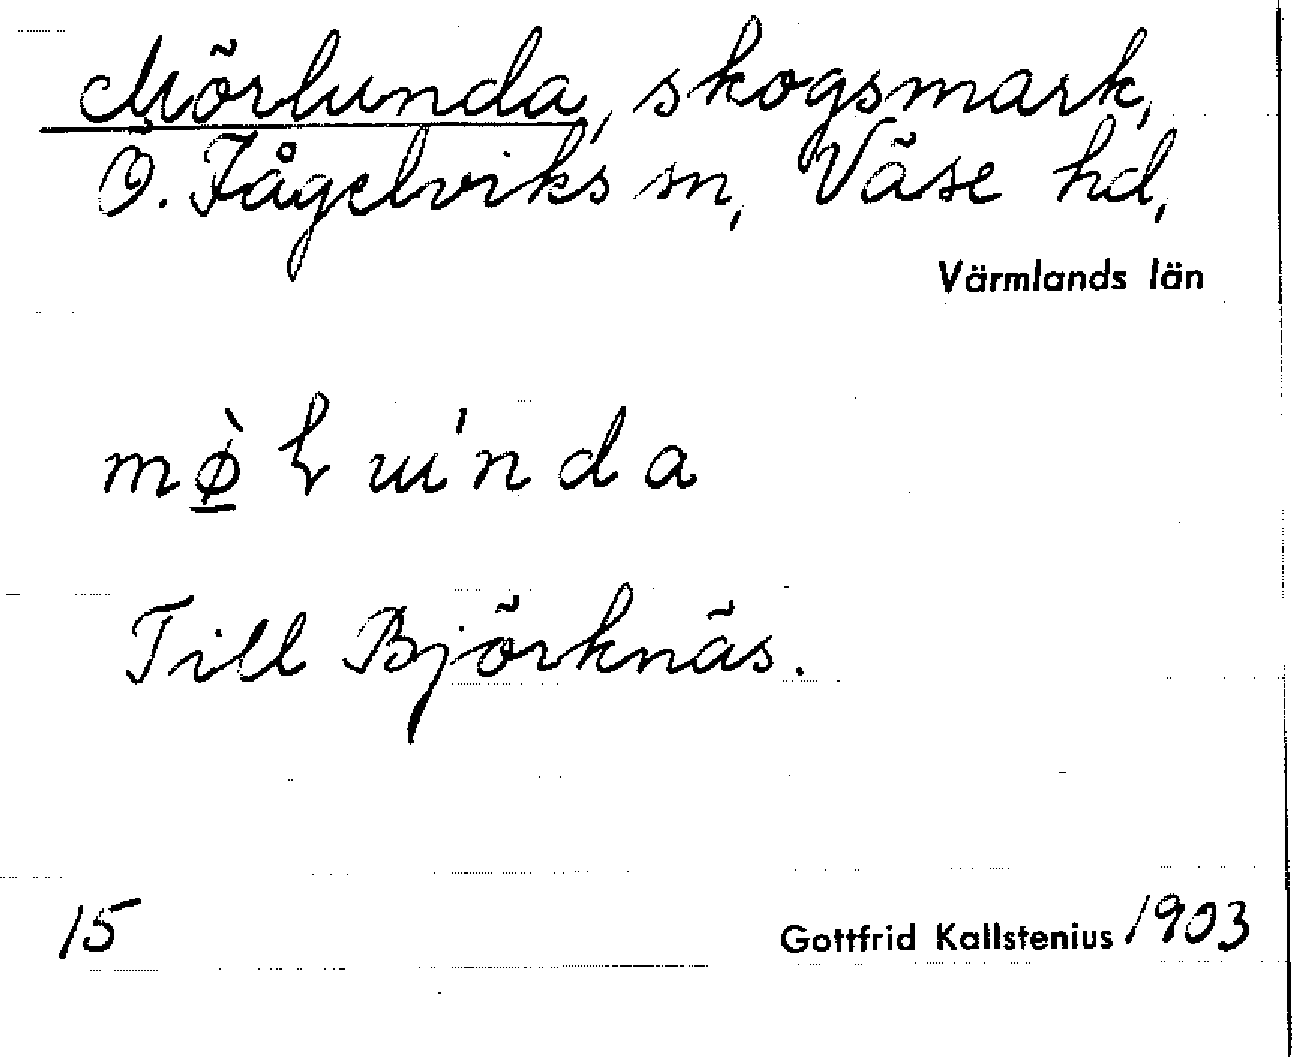 Mörlunda, skogsmark,
Ö. Fågelviks sn, Väse hd,
Värmlands län
Till Björknäs.
15 Gottfrid Kallstenius 1903